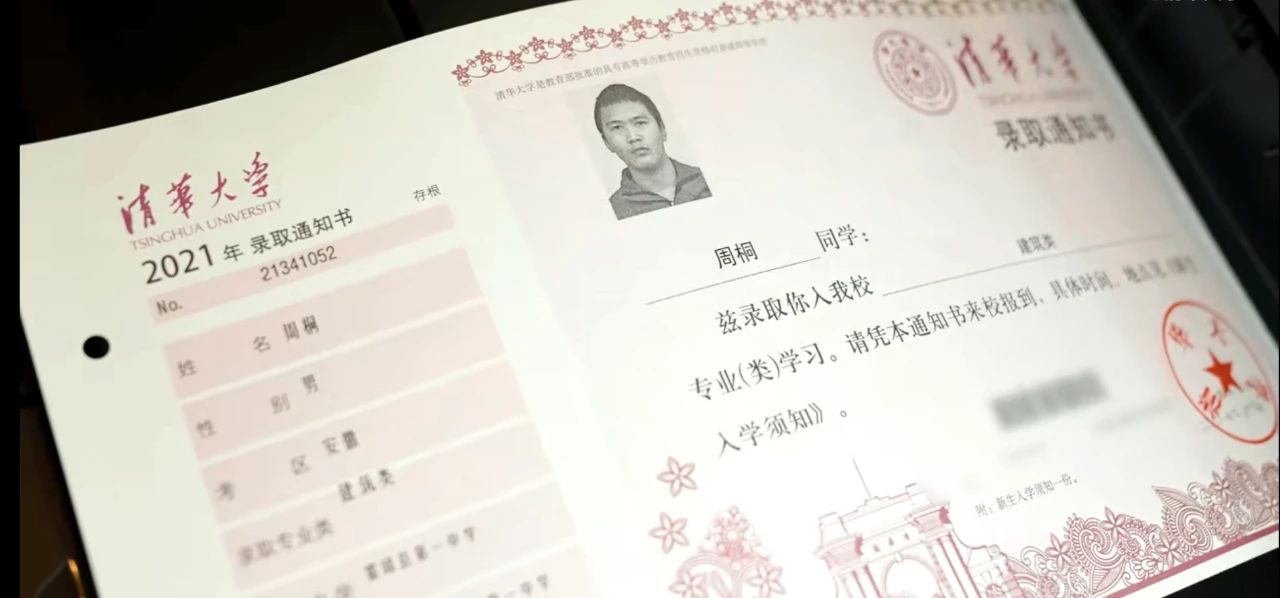 清华大学
TSINGHUA UNIVERSITY
2021 年 录取通知书
存根
No. 21341052
姓 名 周桐
性 别 男
考 区 安徽
录取专业类 建筑类
学 霍邱县第一中学
第一中学
清华大学是教育部批准的具有高等学历教育招生资格的普通高等学校
清华大学
TSINGHUA UNIVERSITY
录取通知书
周桐 同学：
兹录取你入我校 建筑类
专业(类)学习。请凭本通知书来校报到、具体时间、地点见《新生
入学须知》。
附：新生入学须知一份。